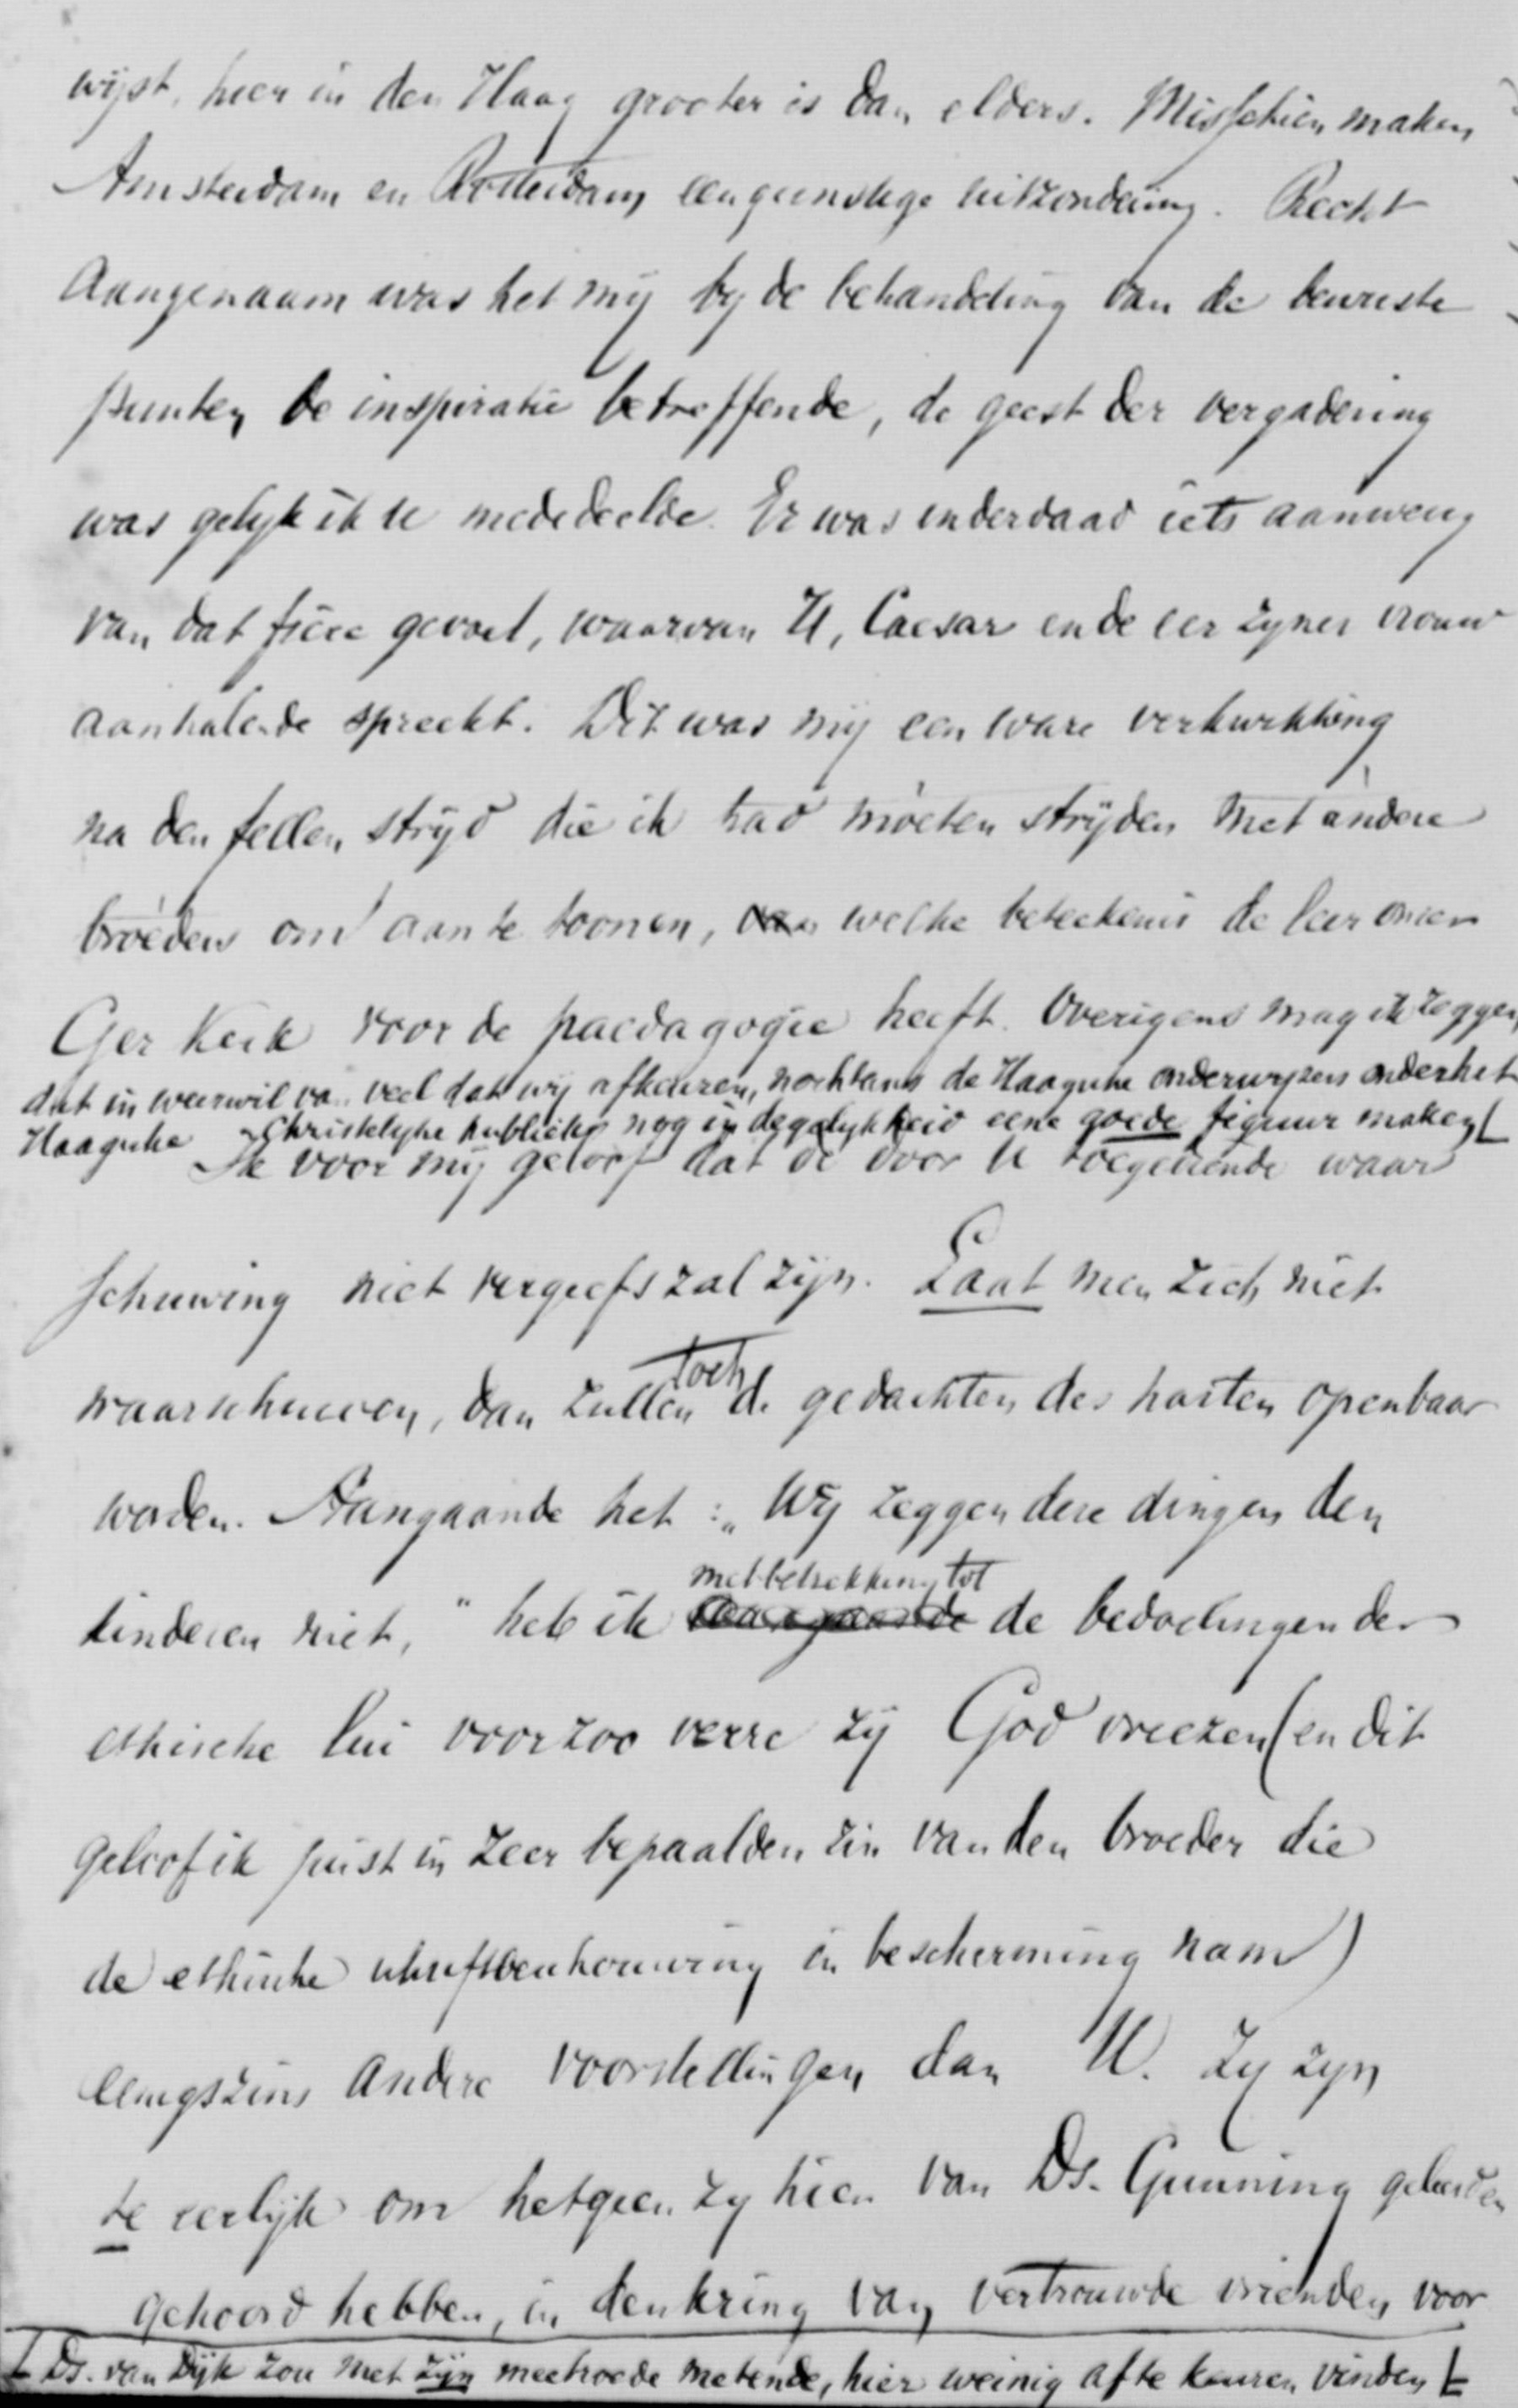 wijst, hier in den Haag grooter is dan elders. Misschien maken
Amsterdam en Rotterdam een gunstige uitzondering. Recht
aangenaam was het mij by de behandeling van de bewuste
punten de inspiratie betreffende, de geest der vergadering
was gelijk ik U mededeelde. Er was inderdaad iets aanwezig
van dat fiere gevoel, waarvan U, Caesar en de eer zyner vrouw
aanhalende spreekt. Dit was mij een ware verkwikking
na den fellen strijd die ik had moeten strijden met andere
broeders om aan te toonen, van welke beteekenis de leer onzer
Ger Kerk voor de paedagogie heeft. Overigens mag ik zeggen,
dat in weerwil van veel dat wij afkeuren, nochtans de Haagsche onderwyzers onder het
Haagsche Christelyke publiek nog in degelykheid eene goede figuur maken
Ik voor mij geloof dat de door U toegediende waar
schuwing niet vergeefs zal zijn. Laat men zich niet
waarschuwen, dan zullen toch de gedachten des harten openbaar
worden. Aangaande het: „Wij zeggen deze dingen den
kinderen niet," heb ik met betrekking tot aangaande de bedoelingen der
ethische lui voor zoo verre zij God vreezen (en dit
geloof ik juist in zeer bepaalden zin van den broeder die
de ethische schriftbeschouwing in bescherming nam)
eenigszins andere voorstellingen dan U. Zy zyn
te eerlijk om hetgeen zy hier van Ds. Gunning geleerden
gehoord hebben, in den kring van vertrouwde vrienden voor
Ds. van Dijk zou met zijn meetroede metende, hier weinig af te keuren vinden